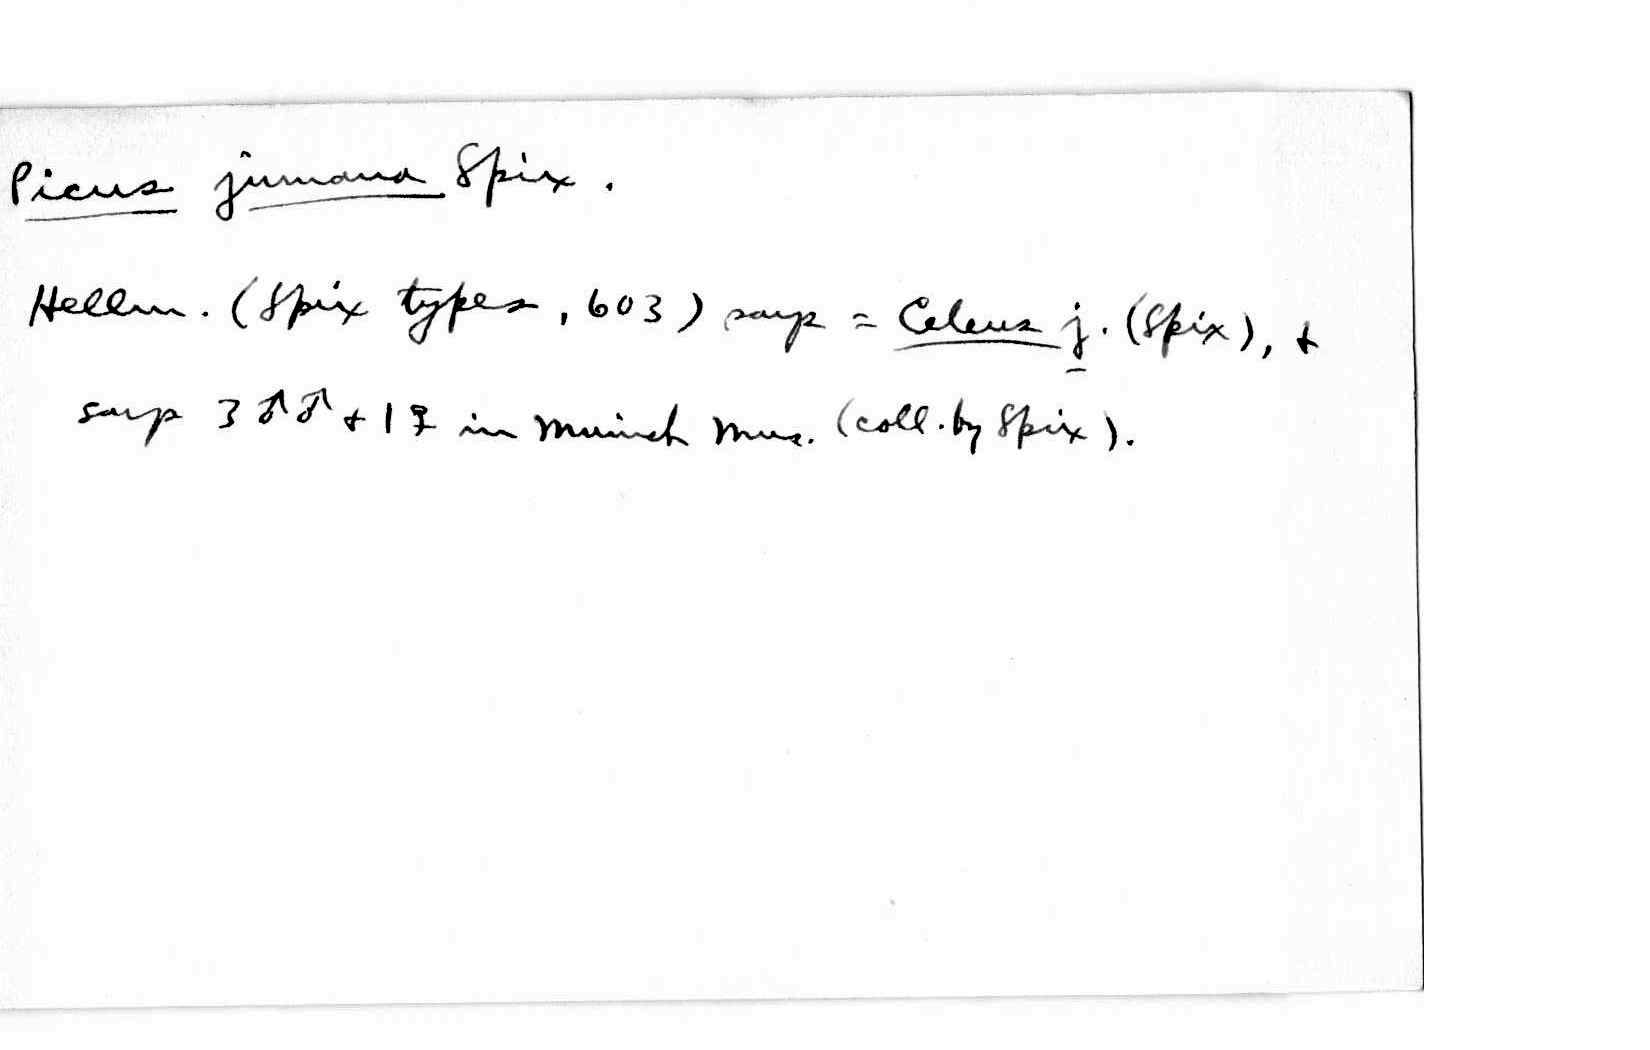 Picus jumana Spix.
Hellm. (Spix types, 603) says = Celeus j. (Spix), +
says 3 ♂♂ + 1 ♀ in Munich Mus. (coll. by Spix).